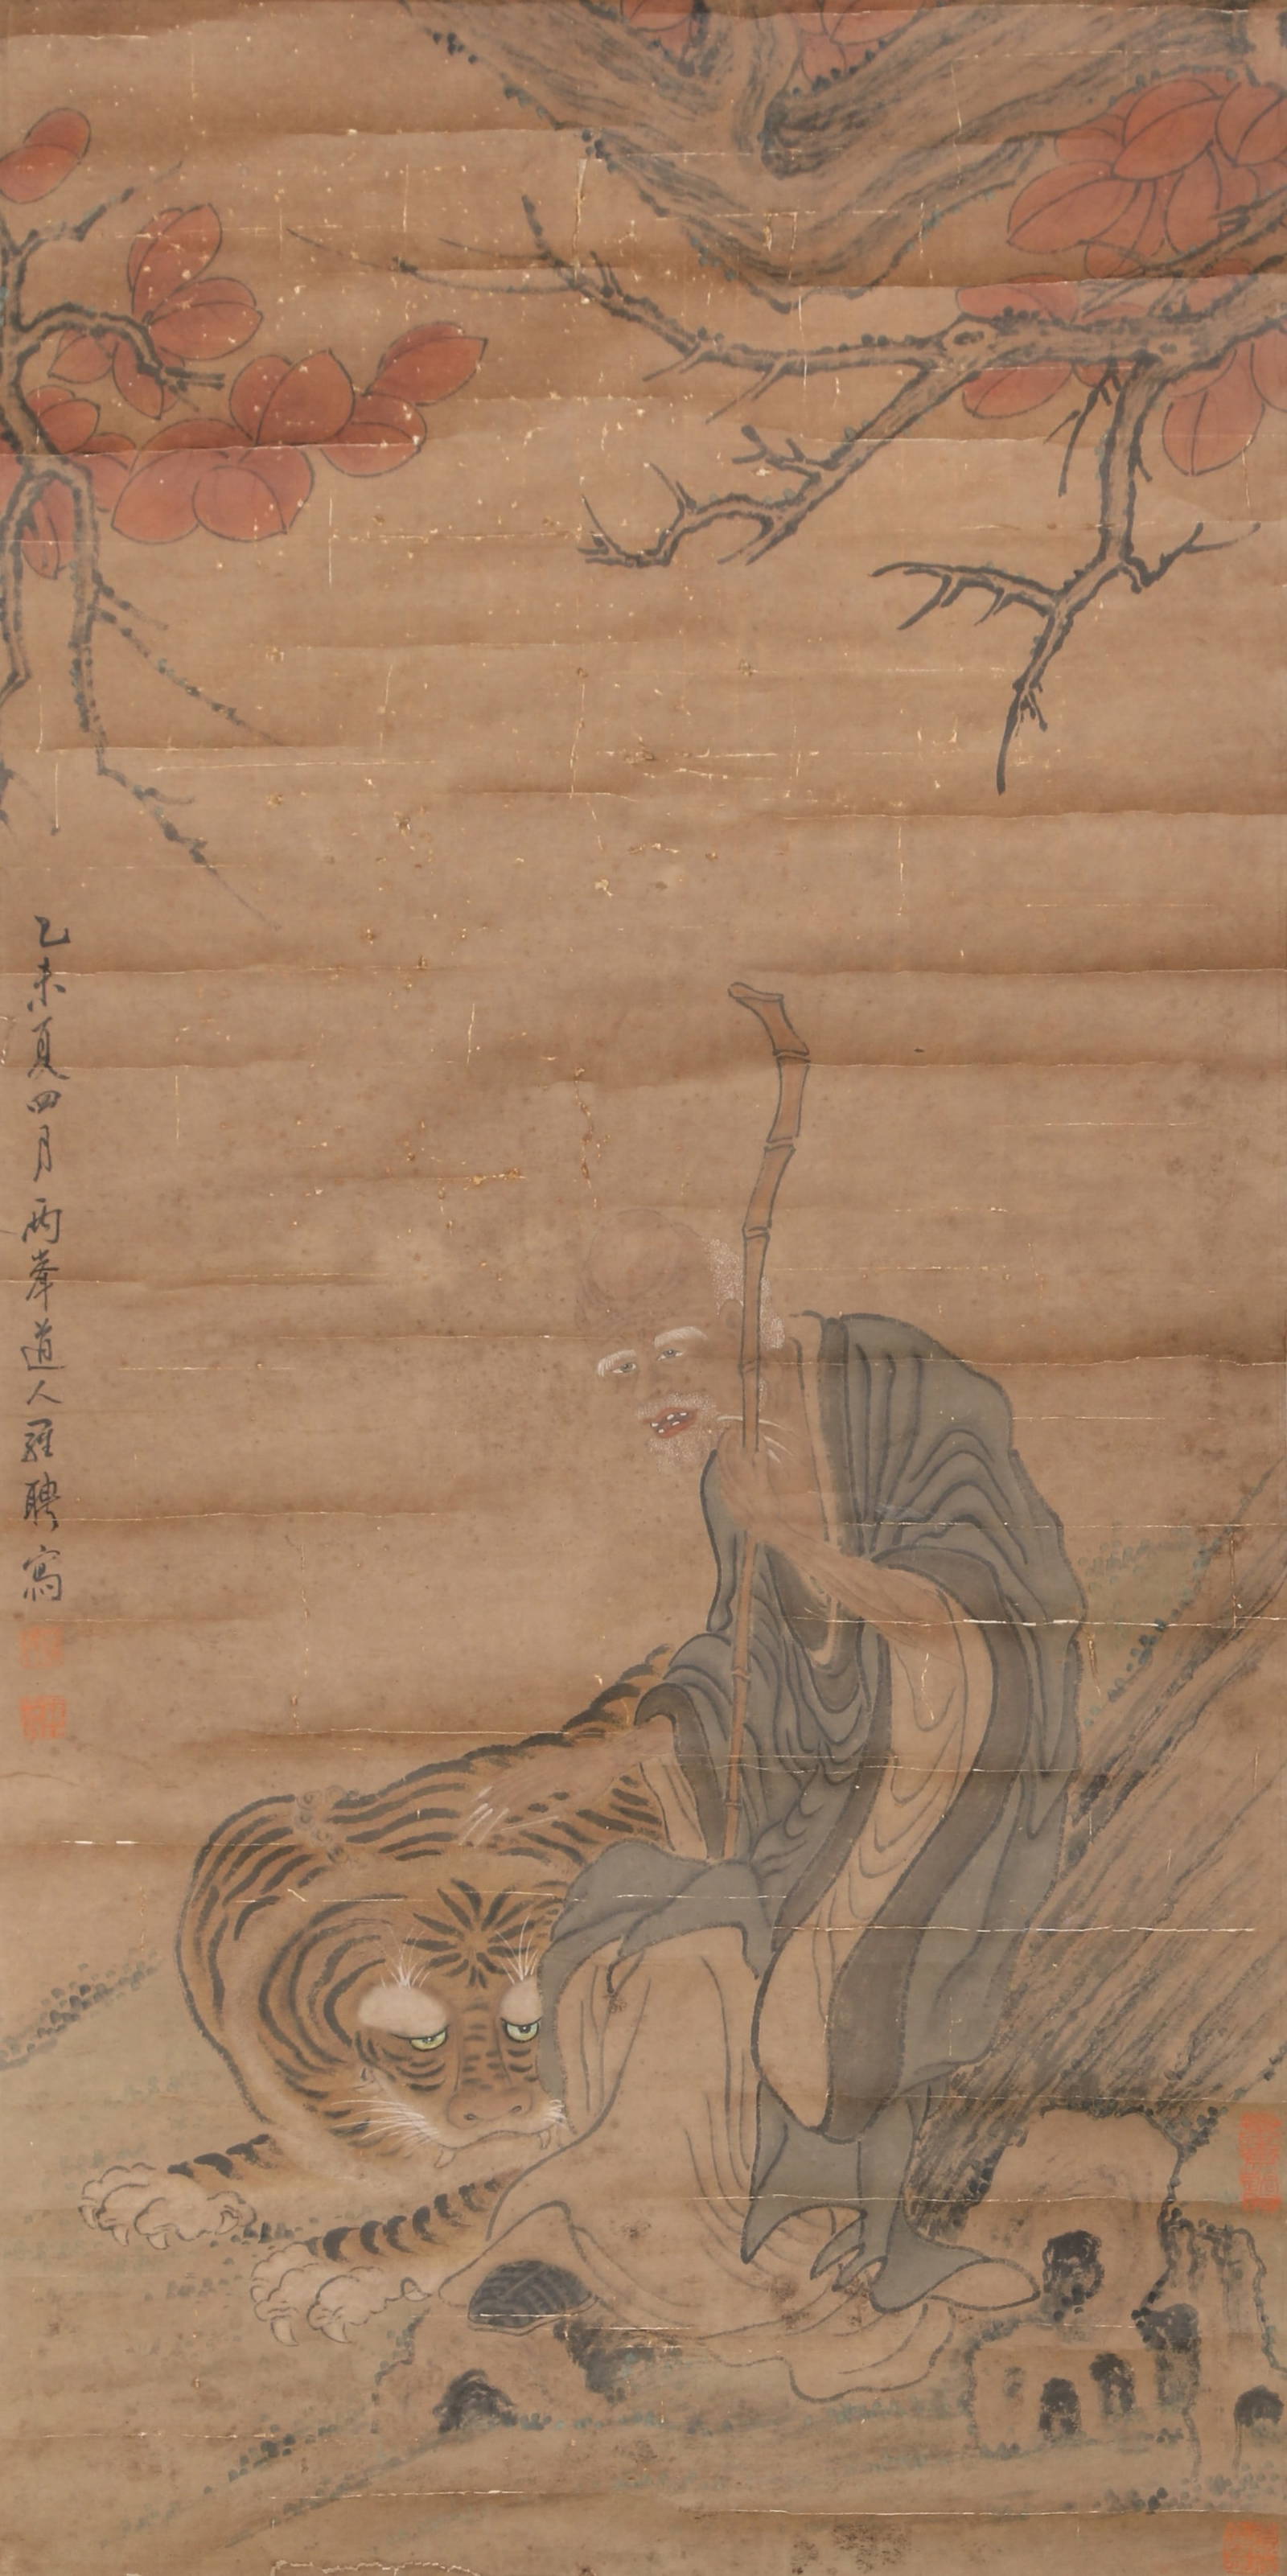 乙未夏四月兩峯道人羅聘寫